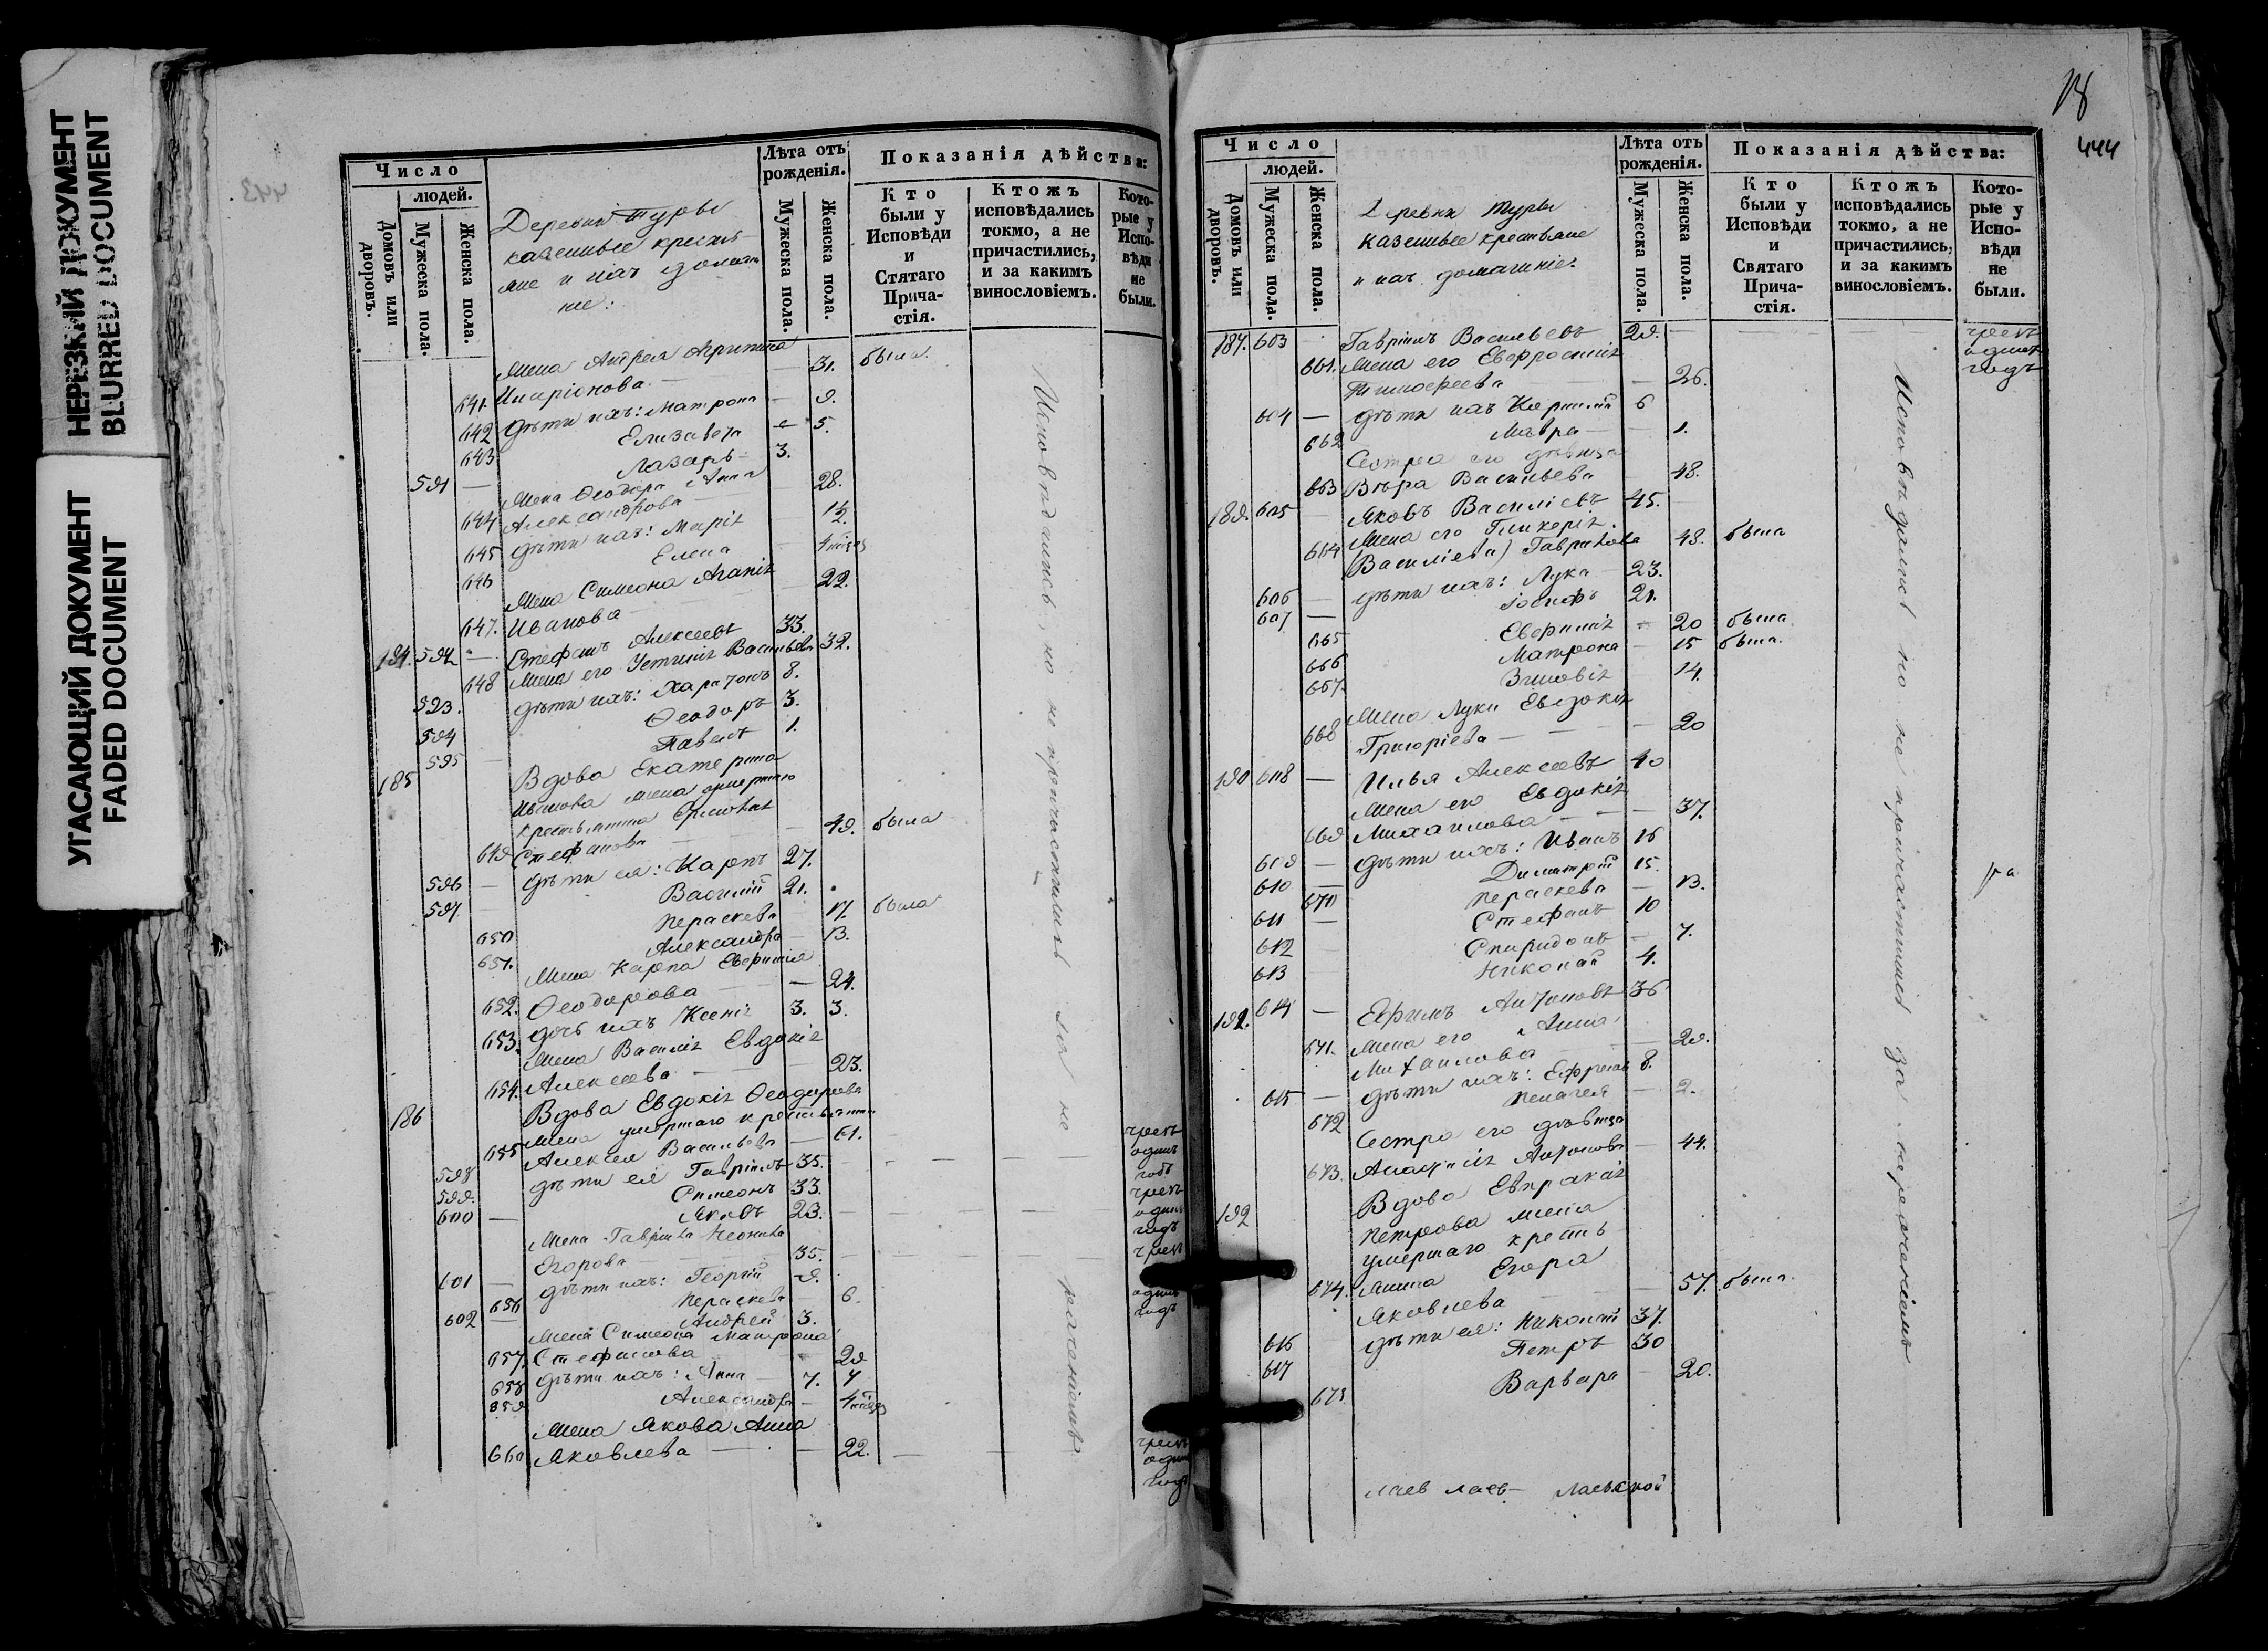 НЕРЕЗКИЙ ДОКУМЕНТ
BLURRED DOCUMENT
УГАСАЮЩИЙ ДОКУМЕНТ
FADED DOCUMENT
443
Число
людей.
Домовъ или дворовъ.
Мужеска пола.
Женска пола.
Деревни Туры
казенные крестья-
не и ихъ домаш-
ніе:
Лѣта отъ рожденія.
Мужеска пола.
Женска пола.
Показанія дѣйства:
Кто были у Исповѣди и Стятаго Прича-стія.
Ктожъ исповѣдались токмо, а не причастились, и за какимъ винословіемъ.
Кото-рые у Испо-вѣди не были.
Жена Андрея
641. Иларіонова — 31. была.
642 дѣти ихъ: Матрона — 9.
643 Елизавета — 5.
591 — Лазарь — 3.
Жена Ѳеодора Анна
644 Александрова — 28.
645 дѣти ихъ: Марія — 1½.
646 Елена
Жена Симеона Агапія
647. Иванова — 22.
184 592 — Стефанъ Алексеевъ 33.
648 Жена его Устинія Васильева 32.
593. дѣти ихъ: Харитонъ 8.
594 Ѳеодоръ 3.
595 — Павелъ 1.
185 Вдова Екатерина
Иванова жена умершаго
крестьянина
649 Стефанова — 49. была
596 — дѣти ея: Карпъ 27.
597 Василій 21.
650 Параскева 17. была
651. Александра — 13.
Жена Карпа Евфимія
652. Ѳеодорова — 24.
653. дочь ихъ Ксенія 3. 3.
Жена Василія Евдокія
654. Алексеева — 23.
186 Вдова Евдокія Ѳеодорова
жена умершаго крестьянина
655 Алексея Васильева — 61.
598 дѣти ея Гавріилъ 35.
599. Симеонъ 33.
600 — Яковъ 23.
Жена Гавріила
Егорова — 35.
601 — дѣти ихъ: Георгій 9.
656 Параскева — 6.
602 — Андрей 3.
Жена Симеона Матрона
657. Стефанова 29
658 дѣти ихъ: Анна 7. 7
659 Александра —
Жена Якова Анна
660 Яковлева — 22.
Исповѣдались, но не причастились за не раченіемъ
чрезъ
одинъ
годъ
чрезъ
одинъ
годъ
чрезъ
одинъ
годъ
чрезъ
одинъ
годъ
18
444
Число
людей.
Домовъ или дворовъ.
Мужеска пола.
Женска пола.
Деревни Туры
казенные крестьяне
и ихъ домашніе.
Лѣта отъ рожденія.
Мужеска пола.
Женска пола.
Показанія дѣйства:
Кто были у Исповѣди и Святаго Прича-стія.
Ктожъ исповѣдались токмо, а не причастились, и за какимъ винословіемъ.
Кото-рые у Испо-вѣди не были.
187. 603 — Гавріилъ Васильевъ 29. —
чрезъ
одинъ
годъ
661. Жена его Евфросинія
Тимоѳеева — 26.
604 — дѣти ихъ 6
662 Мавра — 1.
Сестра его дѣвица
663 Вѣра Васильева — 48.
189. 605 — Яковъ Василіевъ 45.
Жена его Гликерія
664 (Василіева) Гаврилова 48. была
606 — дѣти ихъ: Лука — 23.
607 — Іосифъ 21.
665 Евфимія — 20 была
666 Матрона — 15 была.
667. Зиновія — 14.
Жена Луки Евдокія
668 Григоріева — 20
190 608 — Илья Алексеевъ 40
Жена его Евдокія
669 Михаилова — 37.
609 — дѣти ихъ: Иванъ 16
610 — Димитрій 15.
670 Параскева — 13.
611 — Стефанъ 10
612 — Спиридонъ — 7.
613 Николай 4.
191. 614 — Ефимъ Антоновъ 36
671. Жена его Анна
Михаилова — 29.
615 — дѣти ихъ: Ефремъ 8.
672 Пелагея — 2.
Сестра его дѣвица
673. Анастасія Антонова — 44.
192 Вдова Евпраксія
Петрова жена
умершаго кресть-
674. янина Егора
Яковлева — 57. была.
616 дѣти ея: 37.
617 Петръ 30
675 Варвара — 20.
Исповѣдались но не причастились за нераченіемъ